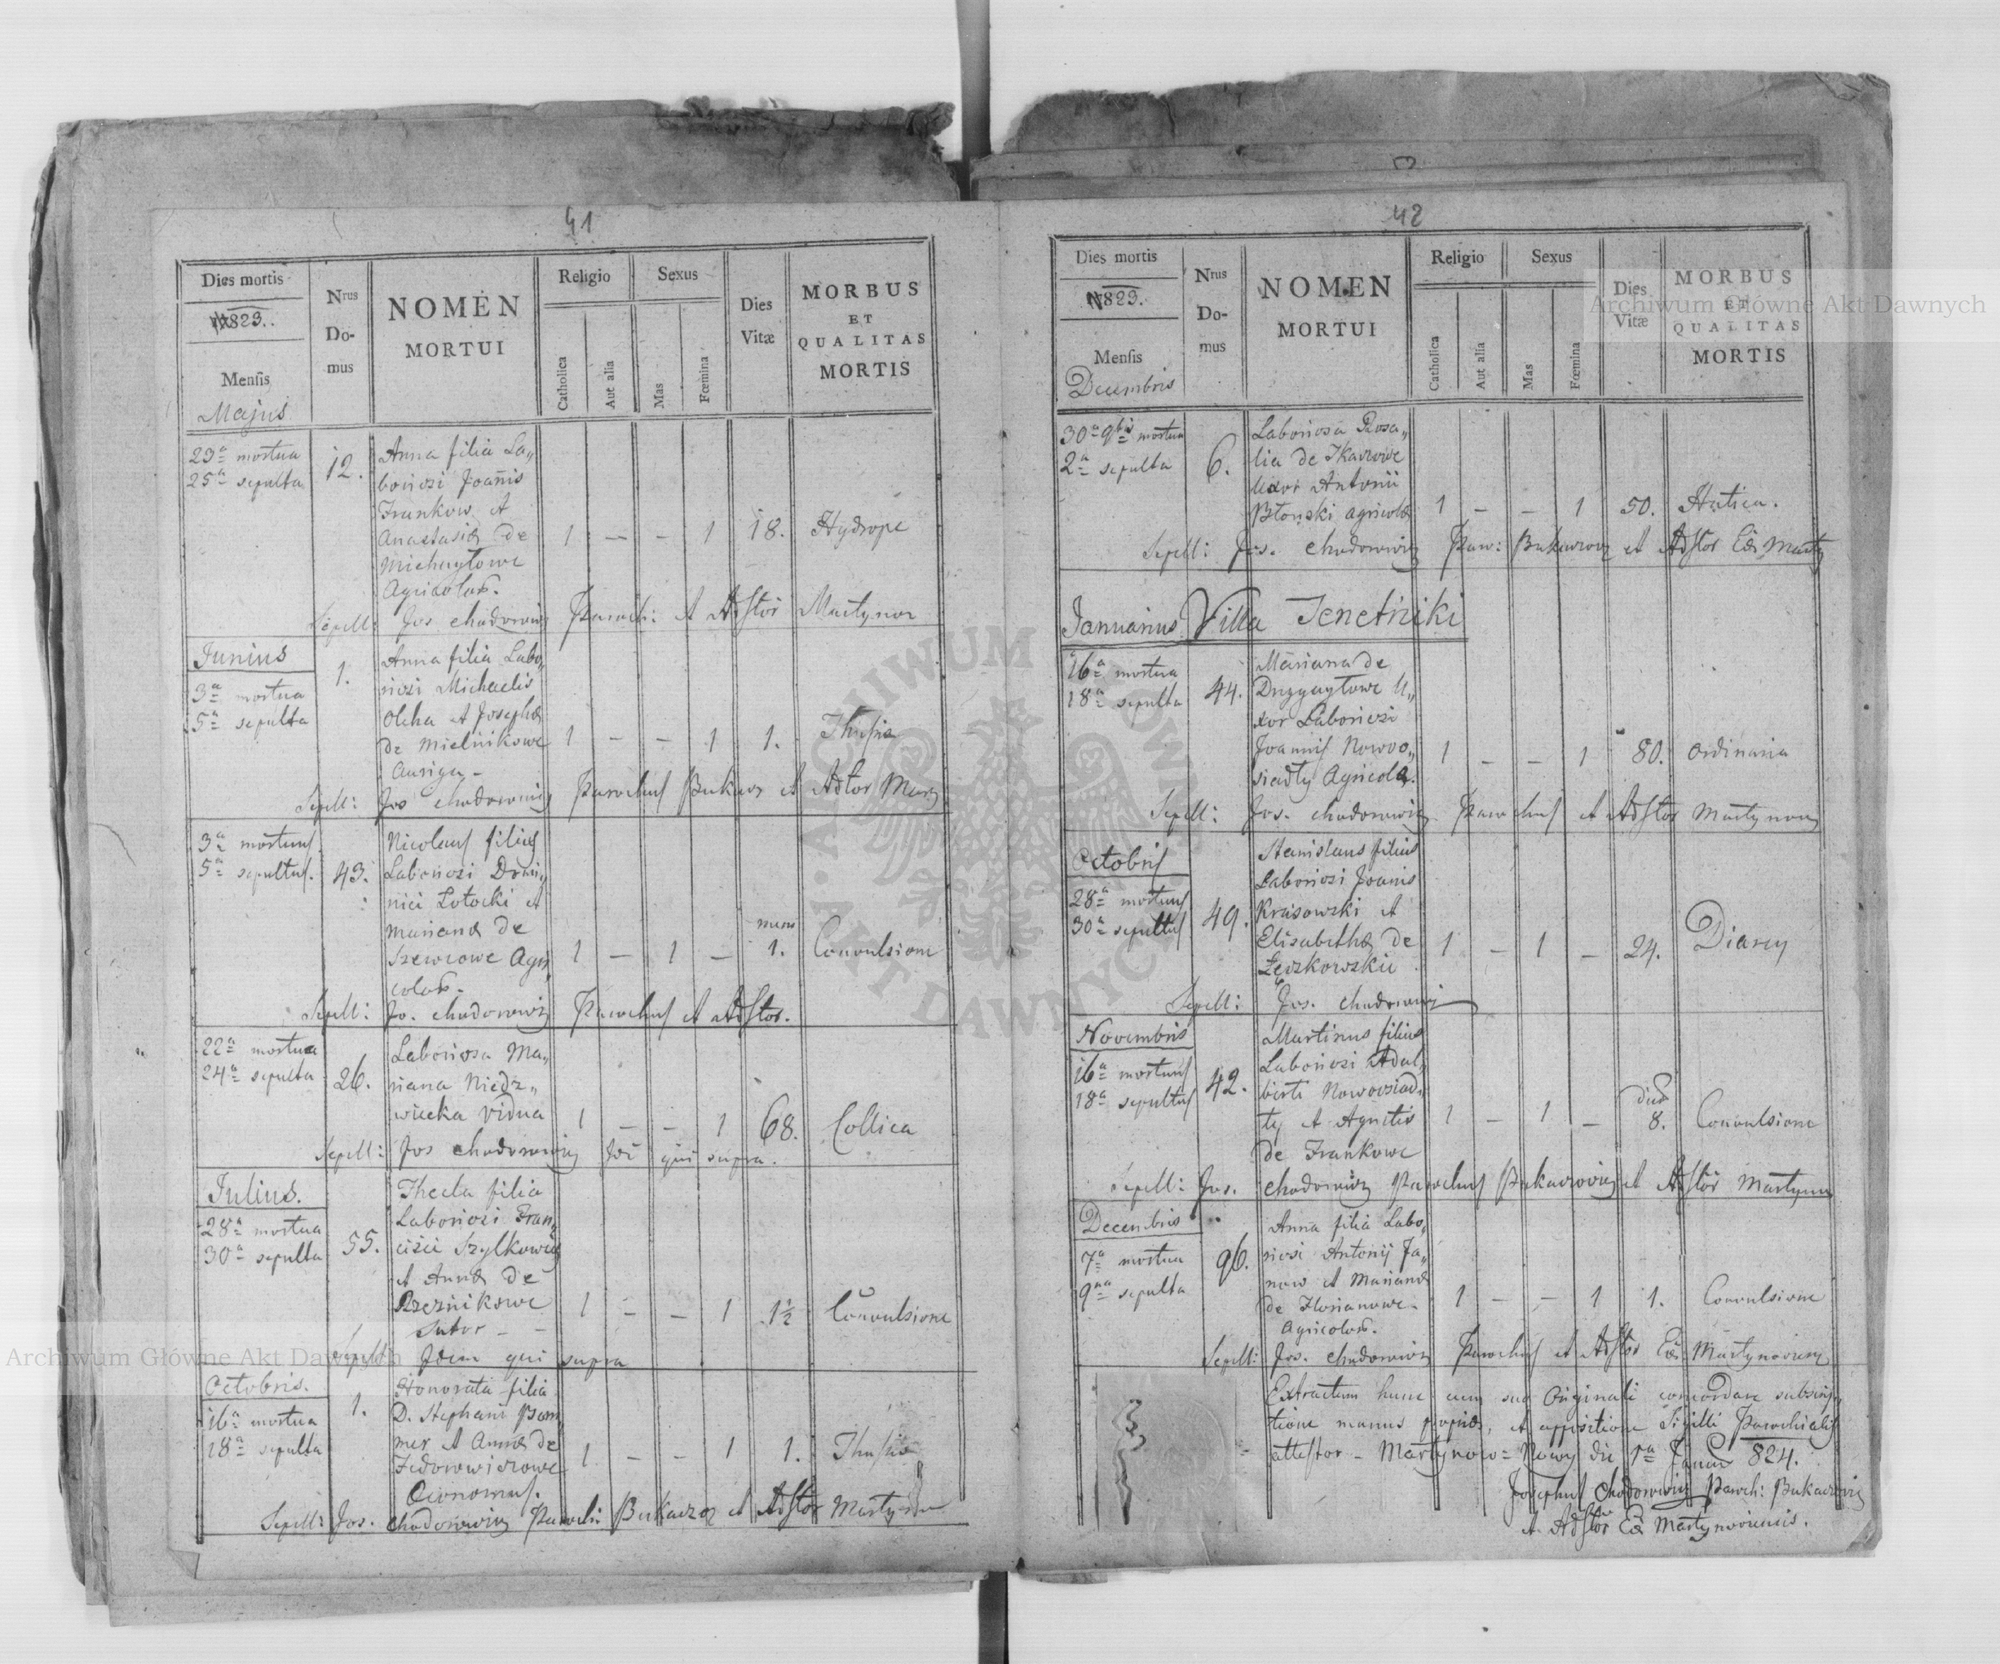 41
Dies mortis
1823.
Mensis
Majus
Nrus
Do-
mus
NOMEN
MORTUI
Religio
Catholica
Aut alia
Sexus
Mas
Fœmina
Dies
Vitæ
MORBUS
ET
QUALITAS
MORTIS
23a mortua
25a sepulta
12.
Anna filia La„
boriosi Joañis
Frankow et
Anastasiæ de
Michayłowe
Agricolar.
1 — — 1 18. Hydrope
Sepell: Jos Chodorowicz Paroch: et Adstor Martynov
Junius
3a mortua
5a sepulta
1.
Anna filia Labo„
riosi Michaelis
Olcha et Josephæ
de Mielnikowe
Auriga -
1 — — 1 1. Thusis
Sepell: Jos Chodorowicz Parochus Bukacz et Adstor Mart
3a mortuus
5a sepultus.
43.
Nicolaus filius
Laboriosi Domi„
nici Łotocki et
Mariannæ de
Szewcowe Agri„
colar.
1 — 1 — mens 1. Convulsione
Sepell: Jo. Chodorowicz Parochus et Adstor.
22a mortua
24a sepulta
26.
Laboriosa Ma„
riana Niedz„
wiecka vidua
1 — — 1 68. Collica
Sepell: Jos Chodorowicz qui supra.
Julius.
28a mortua
30a sepulta
55.
Thecla filia
Laboriosi Fran„
cisci Szylkowicz
et Annæ de
Rzeznikowe
Sutor - -
1 — — 1 1½ Convulsione
Sepell Idem qui supra
Octobris.
16a mortua
18a sepulta
1.
Honorata filia
D. Stephani
mer et Annæ de
Fedorowiczowe
Oeconomus.
1 — — 1 1. Thusis
Sepell: Jos. Chodorowicz Paroch: Bukacz et Adstor Martynov
42
Dies mortis
1823.
Mensis
Decembris
Nrus
Do-
mus
NOMEN
MORTUI
Religio
Catholica
Aut alia
Sexus
Mas
Fœmina
Dies
Vitæ
MORBUS
ET
QUALITAS
MORTIS
30a 9bris mortua
2a sepulta
6.
Laboriosa Rosa„
lia de Tkaczowe
Uxor Antonii
Błonski agricolæ
1 — — 1 50. Hetica.
Sepell: Jos. Chodorowicz Paro: Bukaczov et Adstor Martyn
Januarius Villa Tenetniki
16a mortua
18a sepulta
44.
Mariana de
U„
xor Laboriosi
Joannis Nowoo„
siadły Agricolæ.
1 — — 1 80. Ordinaria
Sepell: Jos. Chodorowicz Parochus et Adstor Martynov
Octobris
28a mortuus
30a sepultus
49.
Stanislaus filius
Laboriosi Joanis
Krasowski et
Elisabethæ de
Łęczkowskie
1 — 1 — 24. Diarey
Sepell: Jos. Chodorowicz
Novembris
16a mortuus
18a sepultus
42.
Martinus filius
Laboriosi Adal„
berti Nowoosiad„
ły et Agnetis
de Frankowe
1 — 1 — dier 8. Convulsione
Sepell: Jos. Chodorowicz Parochus Bukaczoviez et Adstor Martynov
Decembris
7a mortua
9na sepulta
96.
Anna filia Labo„
riosi Antonij Ja„
now et Mariannæ
de Florianowe
Agricolar.
1 — — 1 1. Convulsione
Sepell: Jos. Chodorowicz Parochus et Adstor Martynoviens
Extractum hunc cum suo Originali concordare subscrip„
tione manus propriæ, et appositione Sigilli Parochialis
attestor - Martynow = Nowy die 1a Januar 824.
Josephus Chodorowicz Paroch: Bukaczoviez
et Adstor Martynoviensis.
Archiwum Główne Akt Dawnych
Archiwum Główne Akt Dawnych
ARCHIWUM GŁÓWNE AKT DAWNYCH